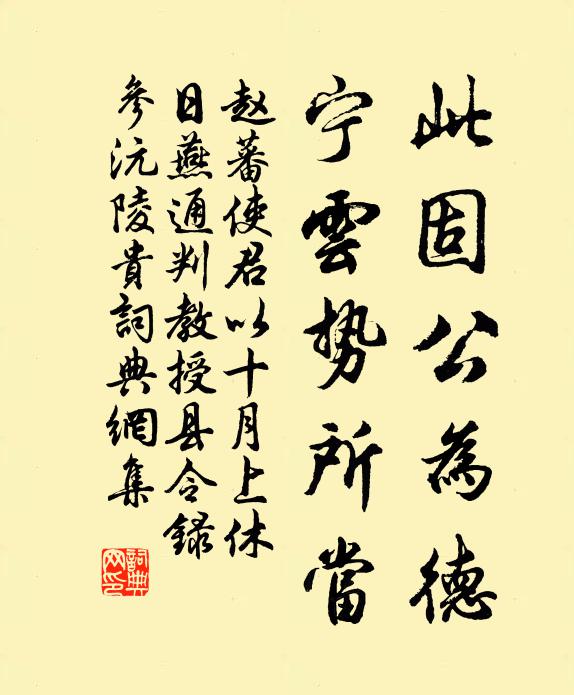 此固公為德
宁雲势所當
赵蕃使君以十月上休
日燕通判教授县令録
參沅陵貴詞典網集
詞典网印